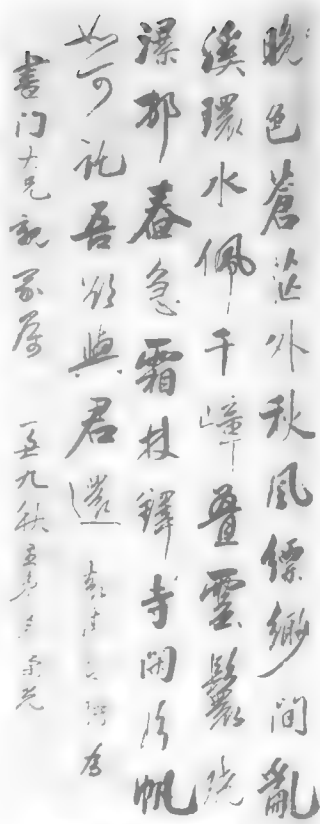 晚色蒼茫外秋風縹緲間亂
溪環水佩千嶂疊雲鬟
瀑邨舂急霜林鐸寺閑片帆
如可託吾欲與君還
書門大兄親家屬 九秋